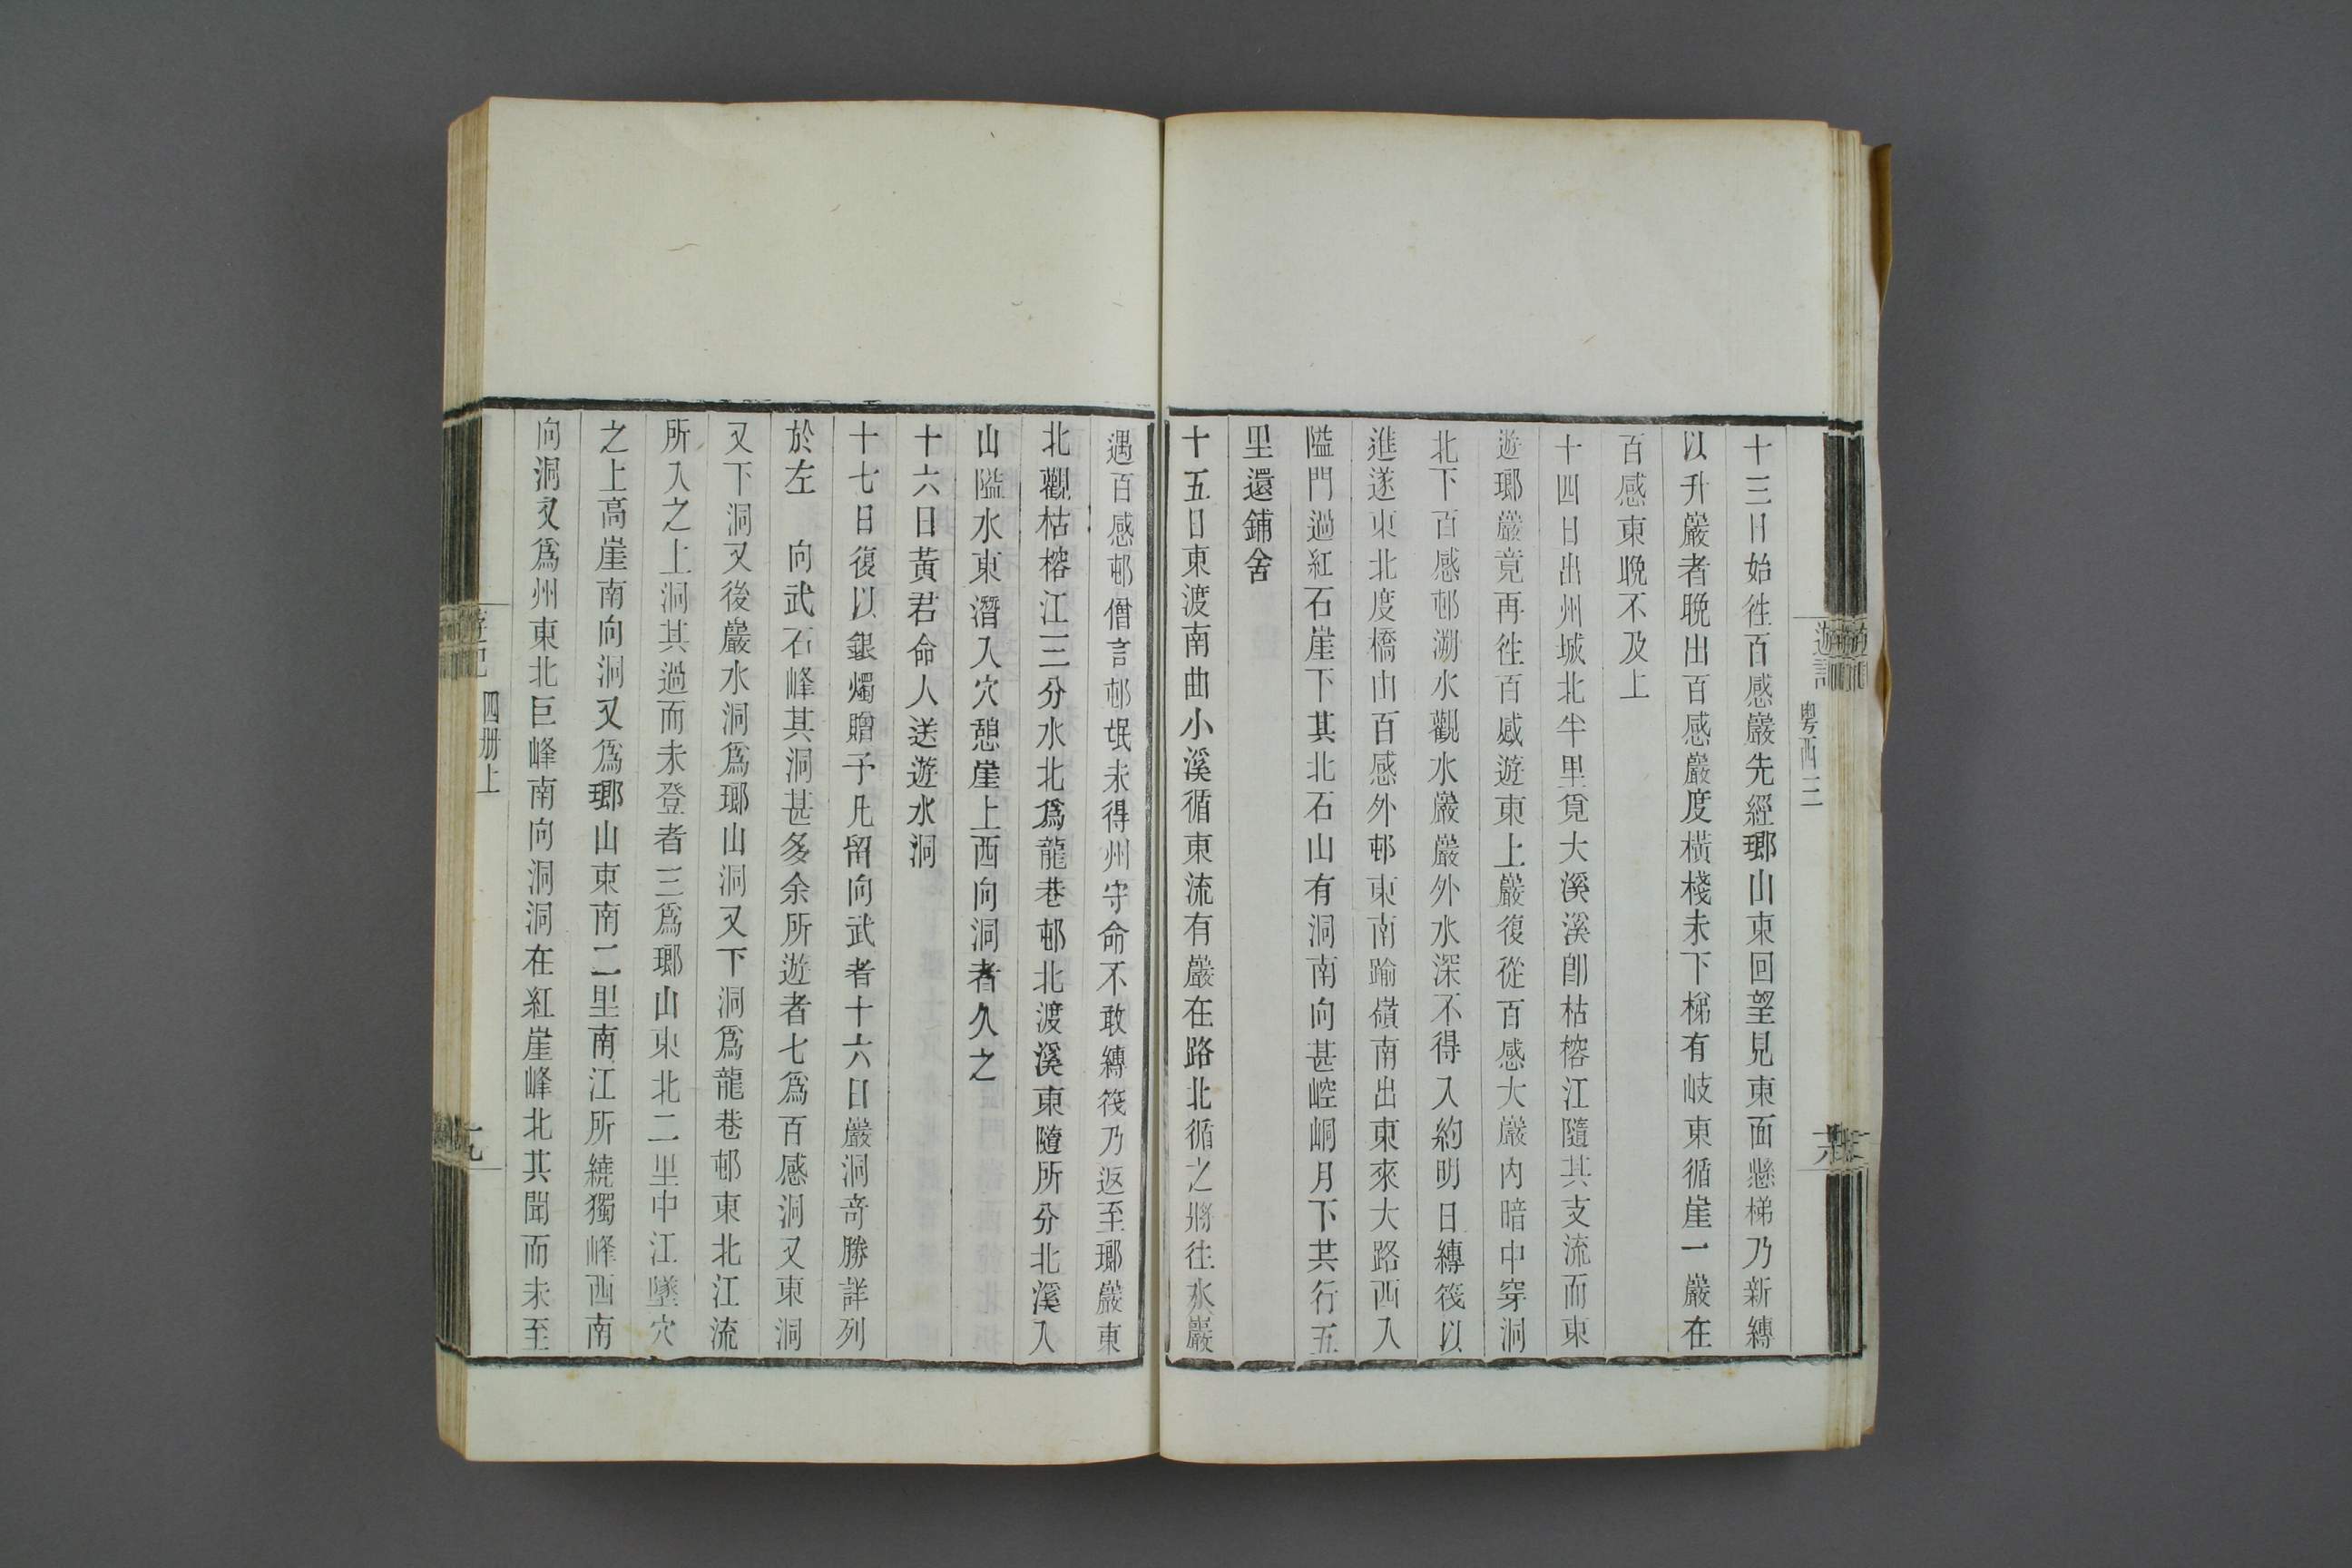 遊記
粵西三
十三日始徃百感巖先經瑯山東回望見東面懸梯乃新縛
以升巖者晚出百感巖度橫棧未下梯有岐東循崖一巖在
百感東晚不及上
十四日出州城北半里覓大溪溪卽枯榕江隨其支流而東
遊瑯巖竟再徃百感遊東上巖復從百感大巖內暗中穿洞
北下百感邨溯水觀水巖巖外水深不得入約明日縛筏以
進遂東北度橋由百感外邨東南踰嶺南出東來大路西入
隘門過紅石崖下其北石山有洞南向甚崆峒月下共行五
里還鋪舍
十五日東渡南曲小溪循東流有巖在路北循之將往水巖
遇百感邨僧言邨氓未得州守命不敢縛筏乃返至瑯巖東
北觀枯榕江三分水北爲龍巷邨北渡溪東隨所分北溪入
山隘水東潛入穴憩崖上西向洞者久之
十六日黃君命人送遊水洞
十七日復以銀燭贈予凡留向武者十六日巖洞奇勝詳列
於左　向武石峰其洞甚多余所遊者七爲百感洞又東洞
又下洞又後巖水洞爲瑯山洞又下洞爲龍巷邨東北江流
所入之上洞其過而未登者三爲瑯山東北二里中江墜穴
之上高崖南向洞又爲瑯山東南二里南江所繞獨峰西南
向洞又爲州東北巨峰南向洞洞在紅崖峰北其聞而未至
遊記
四册上